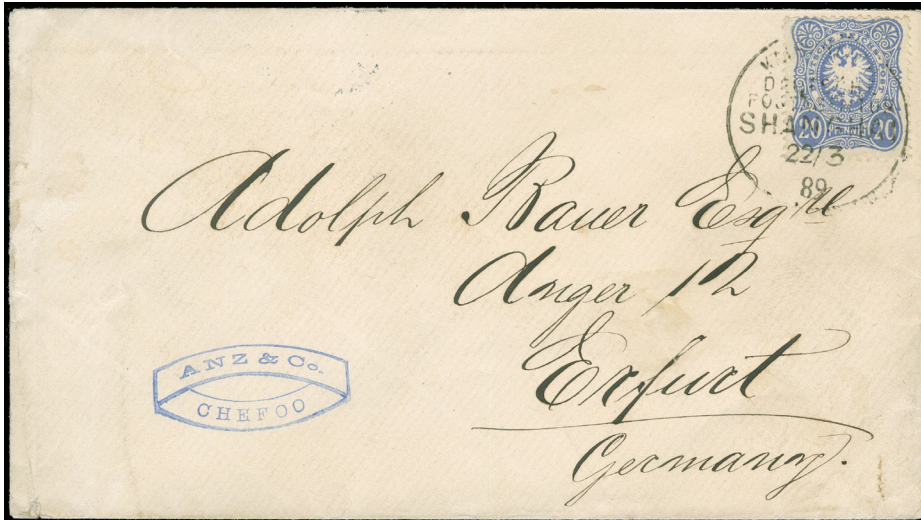 SHANGHAI
22/3
89
20 PFENNIG 20
Adolph Bauer Esq.re
Anger 12
Erfurt
Germany.
ANZ & Co.
CHEFOO